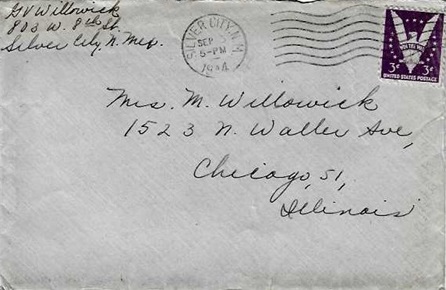 GV Willowick
803 W. 8th St.
Silver City, N. Mex.
SILVER CITY, N.M.
SEP
6-PM
1944
3¢ 3¢
UNITED STATES POSTAGE
Mrs. M. Willowick
1523 N. Waller Ave,
Chicago, 51,
Illinois